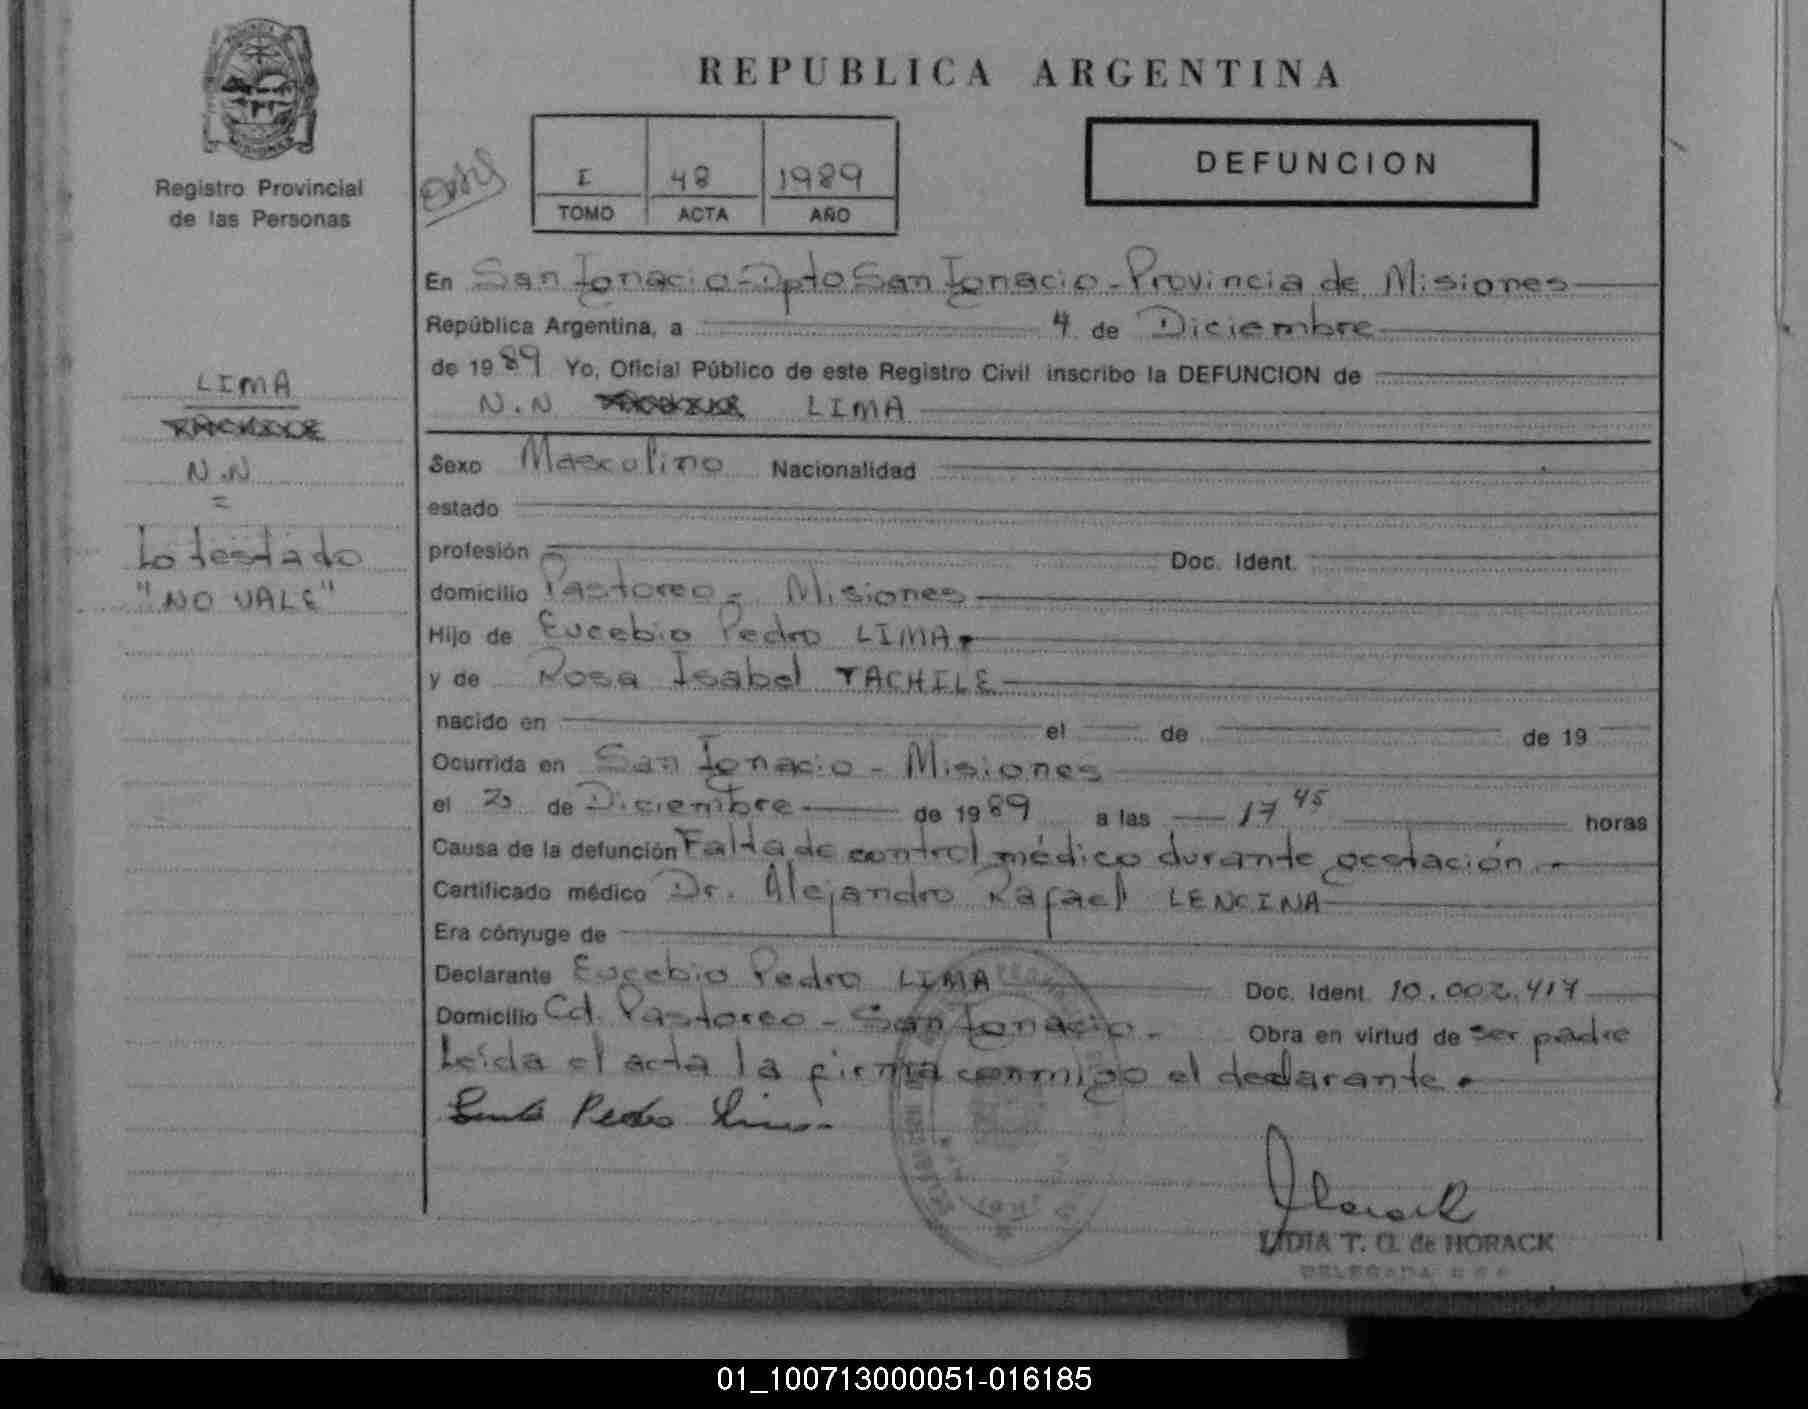 REPUBLICA ARGENTINA
Registro Provincial
de las Personas
I 48 1989
TOMO ACTA AÑO
DEFUNCION
En San Ignacio - Dpto San Ignacio - Provincia de Misiones
República Argentina, a 4 de Diciembre
de 1989 Yo, Oficial Público de este Registro Civil inscribo la DEFUNCION de
N.N LIMA
LIMA
N.N
=
Lo testado
"NO VALE"
Sexo Masculino Nacionalidad
estado
profesión Doc. Ident.
domicilio Pastoreo - Misiones
Hijo de Eucebio Pedro LIMA
y de Rosa Isabel TACHILE
nacido en el de de 19
Ocurrida en San Ignacio - Misiones
el de Diciembre de 1989 a las 17 45 horas
Causa de la defunción Falta de control médico durante gestación.-
Certificado médico Dr. Alejandro Rafael LENCINA
Era cónyuge de
Declarante Eucebio Pedro LIMA Doc. Ident. 10.002.417
Domicilio Cd. Pastoreo - San Ignacio - Obra en virtud de ser padre
Leída el acta la firma conmigo el declarante.
Pedro Lima.-
LIDIA T. G. de HORACK
DELEGADA
01_100713000051-016185